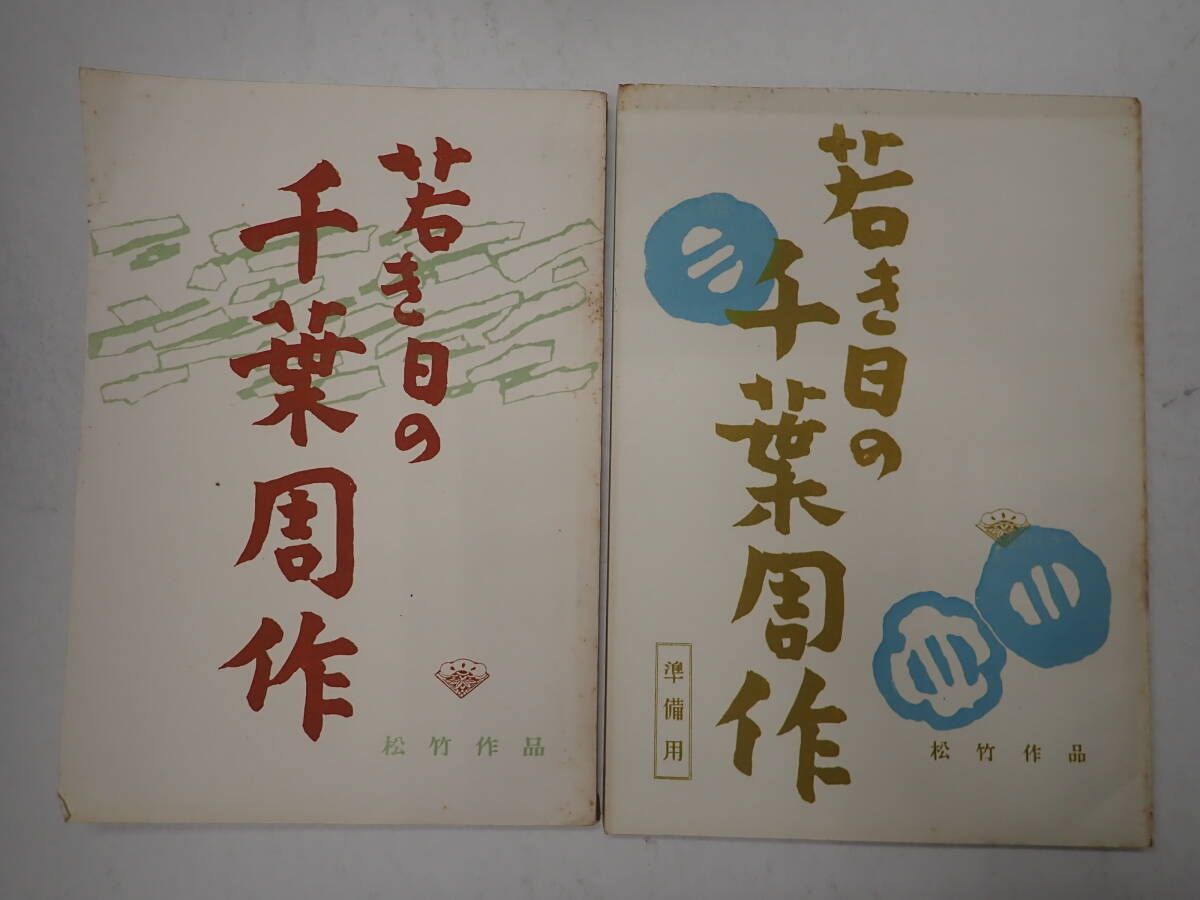 若き日の
千葉周作
松竹作品
若き日の
千葉周作
準備用
松竹作品